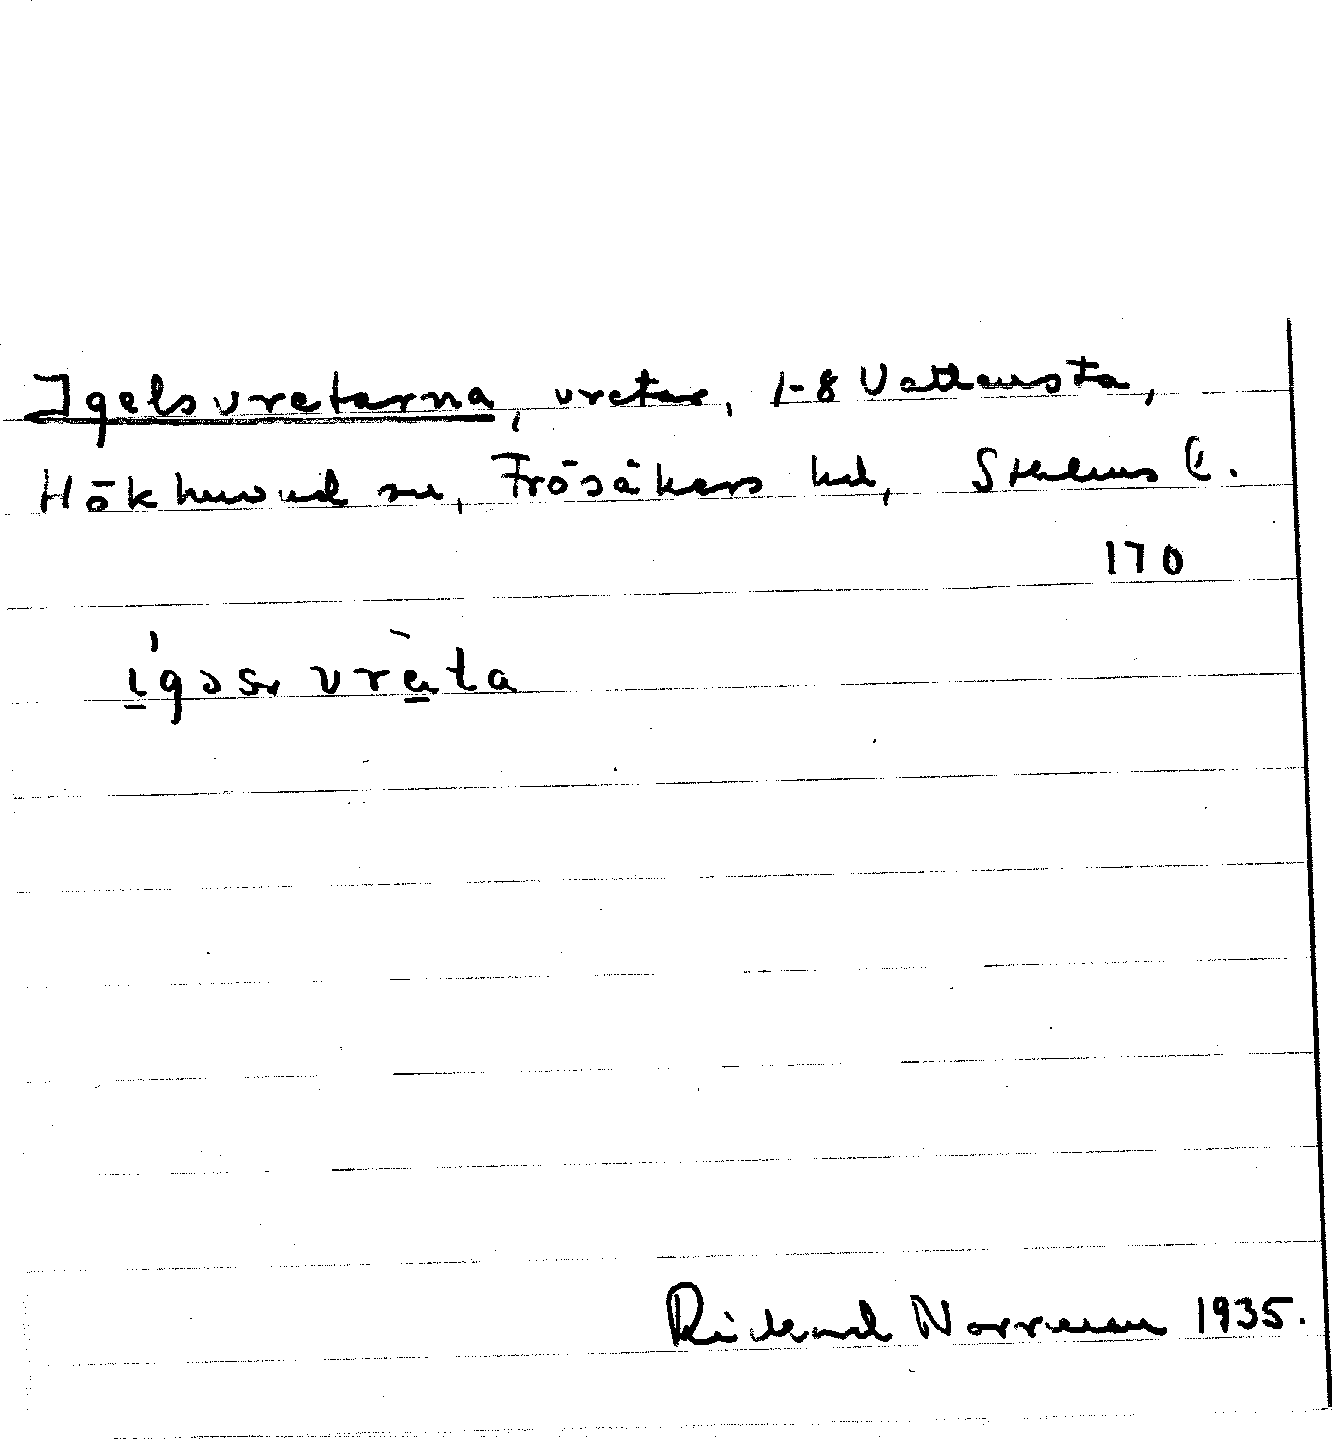 Igelsvretarna, vretar, 1-8 Vattensta,
Hökhuvud sn, Frösåkers hd, Sthlms l.
170
vreta
Rickard Norrman 1935.